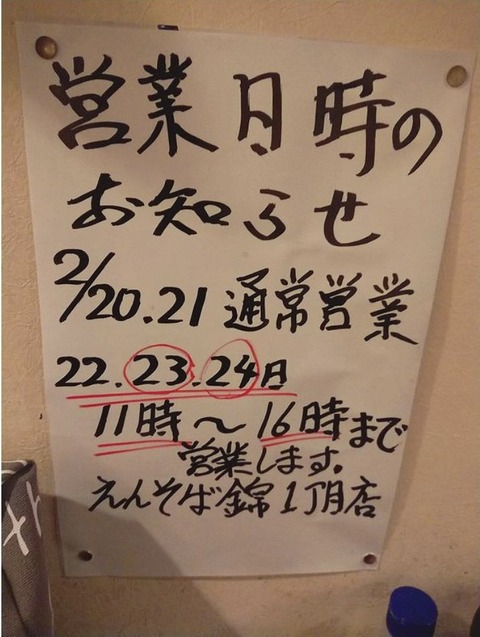 営業日時の
お知らせ
2/20.21 通常営業
22.23.24日
11時～16時まで
営業します。
えんそば錦1丁目店